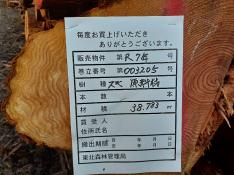 毎度お買上げいただき
ありがとうございます。
販売物件 第R.7場 号
巻立番号 第003205 号
樹種
本数 本
材積 38.783 m³
買受人
住所氏名
搬出期間 自 年 月 日
至 年 月 日
東北森林管理局